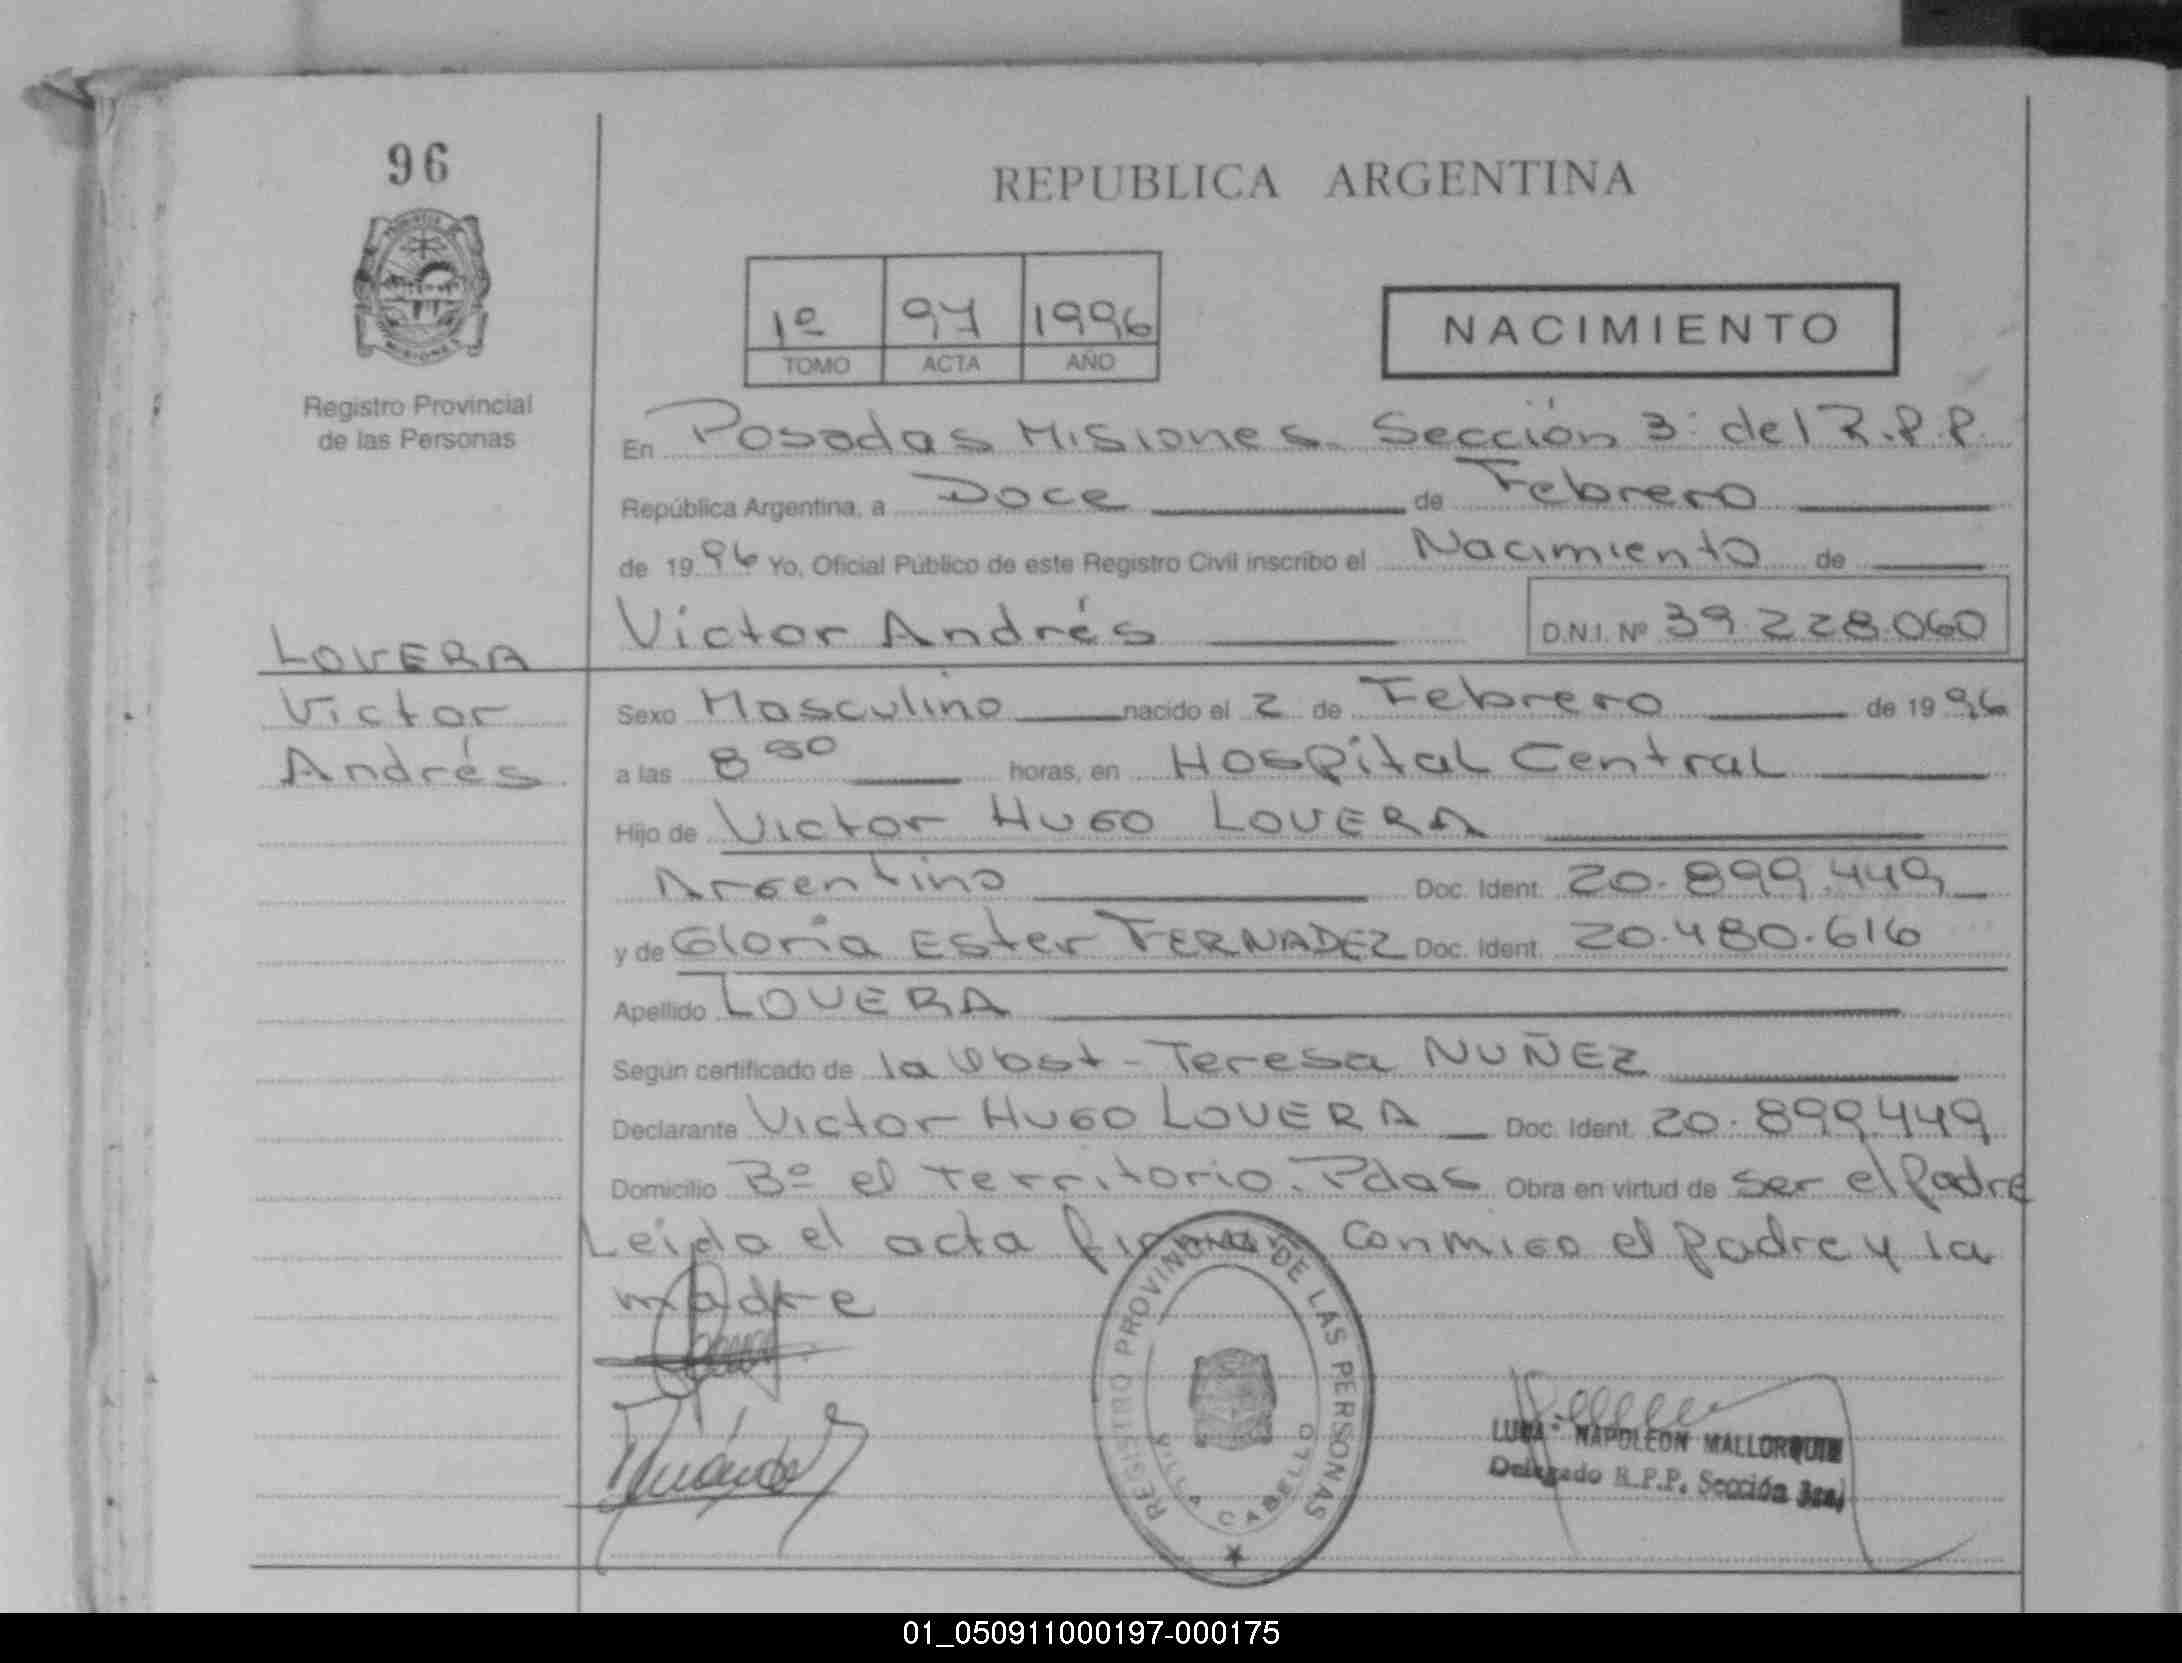 96
REPUBLICA ARGENTINA
PROVINCIA DE MISIONES
1º 97 1996
TOMO ACTA AÑO
NACIMIENTO
Registro Provincial
de las Personas
En Posadas Misiones. Sección 3ª del R.P.P.
República Argentina, a Doce de Febrero
de 1996 Yo, Oficial Público de este Registro Civil inscribo el Nacimiento de
Victor Andrés D.N.I. Nº 39.228.060
LOVERA
Victor
Andrés
Sexo Masculino nacido el 2 de Febrero de 1996
a las 8 horas, en Hospital Central
Hijo de Victor HUGO LOVERA
Argentino Doc. Ident. 20.899.449
y de Gloria Ester FERNADEZ Doc. Ident. 20.480.616
Apellido LOVERA
Según certificado de la Obst - Teresa NUÑEZ
Declarante Victor HUGO LOVERA Doc. Ident. 20.899.449
Domicilio Bº el Territorio. Pdas Obra en virtud de ser el Padre
Leida el acta firman conmigo el padre y la
madre
REGISTRO PROVINCIAL DE LAS PERSONAS
VILLA CABELLO
NAPOLEON MALLORQUIN
Delegado R.P.P. Sección 3ra.
01_050911000197-000175